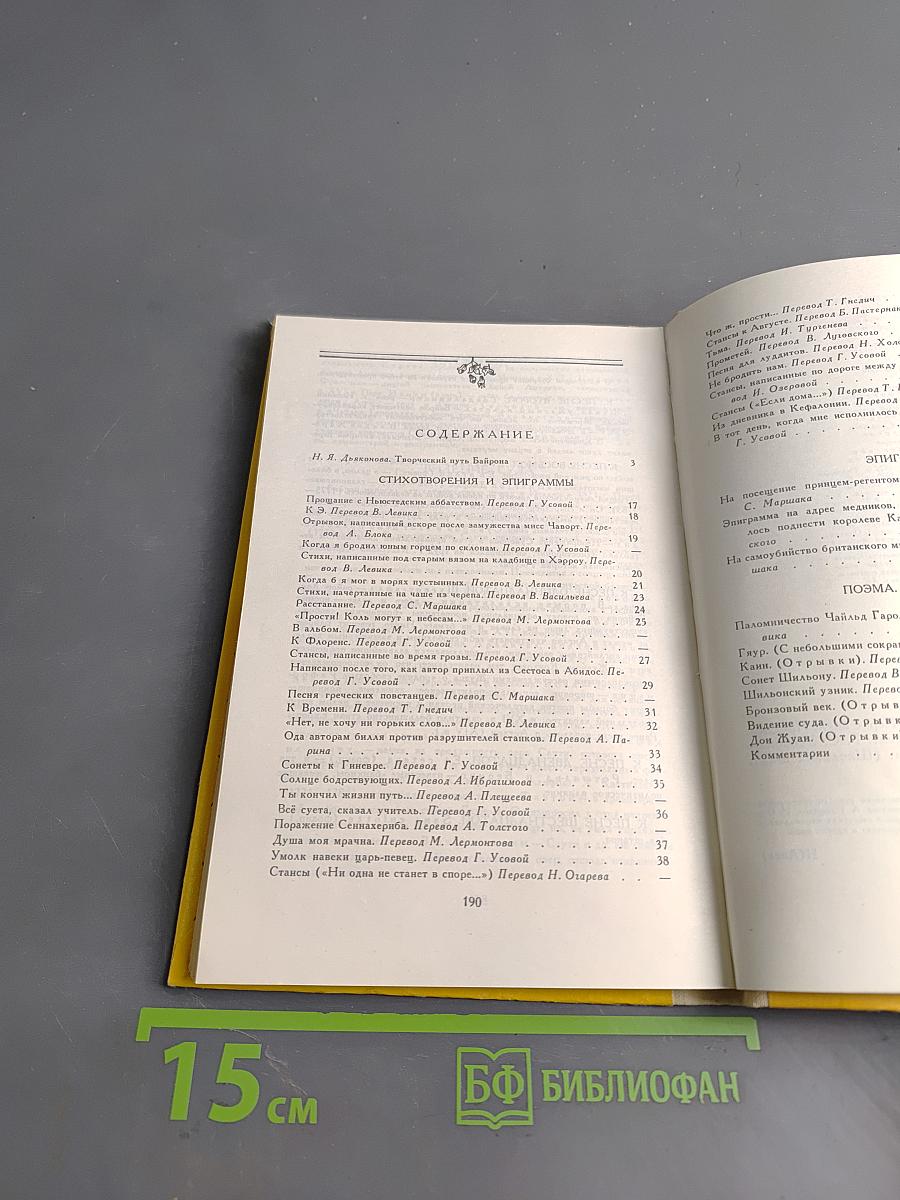 СОДЕРЖАНИЕ
Н. Я. Дьяконова. Творческий путь Байрона . . . . . . . . . 3
СТИХОТВОРЕНИЯ И ЭПИГРАММЫ
Прощание с Ньюстедским аббатством. Перевод Г. Усовой . . . . 17
К Э. Перевод В. Левика . . . . . . . . . . . . . . 18
Отрывок, написанный вскоре после замужества мисс Чаворт. Пере-
вод А. Блока . . . . . . . . . . . . . . . 19
Когда я бродил юным горцем по склонам. Перевод Г. Усовой . . . —
Стихи, написанные под старым вязом на кладбище в Хэрроу. Пере-
вод В. Левика . . . . . . . . . . . . . . . 20
Когда б я мог в морях пустынных. Перевод В. Левика . . . . 21
Стихи, начертанные на чаше из черепа. Перевод В. Васильева . . . 23
Расставание. Перевод С. Маршака . . . . . . . . . . 24
«Прости! Коль могут к небесам...» Перевод М. Лермонтова . . . 25
В альбом. Перевод М. Лермонтова . . . . . . . . . . —
К Флоренс. Перевод Г. Усовой . . . . . . . . . . . —
Стансы, написанные во время грозы. Перевод Г. Усовой . . . . 27
Написано после того, как автор приплыл из Сестоса в Абидос. Пе-
ревод Г. Усовой . . . . . . . . . . . . . . 29
Песня греческих повстанцев. Перевод С. Маршака . . . . . —
К Времени. Перевод Т. Гнедич . . . . . . . . . . . 31
«Нет, не хочу ни горьких слов...» Перевод В. Левика . . . . . 32
Ода авторам билля против разрушителей станков. Перевод А. Па-
рина . . . . . . . . . . . . . . . . . . 33
Сонеты к Гиневре. Перевод Г. Усовой . . . . . . . . . 34
Солнце бодрствующих. Перевод А. Ибрагимова . . . . . . 35
Ты кончил жизни путь... Перевод А. Плещеева . . . . . . —
Всё суета, сказал учитель. Перевод Г. Усовой . . . . . . 36
Поражение Сеннахериба. Перевод А. Толстого . . . . . . —
Душа моя мрачна. Перевод М. Лермонтова . . . . . . . 37
Умолк навеки царь-певец. Перевод Г. Усовой . . . . . . 38
Стансы («Ни одна не станет в споре...») Перевод Н. Огарева . . —
190
Что ж, прости... Перевод Т. Гнедич .
Стансы к Августе. Перевод Б. Пастернак
Тьма. Перевод И. Тургенева . . .
Прометей. Перевод В. Луговского .
Песня для луддитов. Перевод Н. Холо
Не бродить нам. Перевод Г. Усовой
Стансы, написанные по дороге между
вод И. Озеровой . . . .
Стансы («Если дома...») Перевод Т.
Из дневника в Кефалонии. Перевод
В тот день, когда мне исполнилось
Г. Усовой . . . . . .
ЭПИГ
На посещение принцем-регентом
С. Маршака . . . . .
Эпиграмма на адрес медников,
лось поднести королеве Ка
ского . . . . . .
На самоубийство британского ми
шака . . . . . .
ПОЭМА.
Паломничество Чайльд Гаро
вика . . . . . .
Гяур. (С небольшими сокра
Каин. (Отрывки). Пере
Сонет Шильону. Перевод В
Шильонский узник. Перево
Бронзовый век. (Отрыв
Видение суда. (Отрывк
Дон Жуан. (Отрывки
Комментарии . . . .
15 см
БФ БИБЛИОФАН